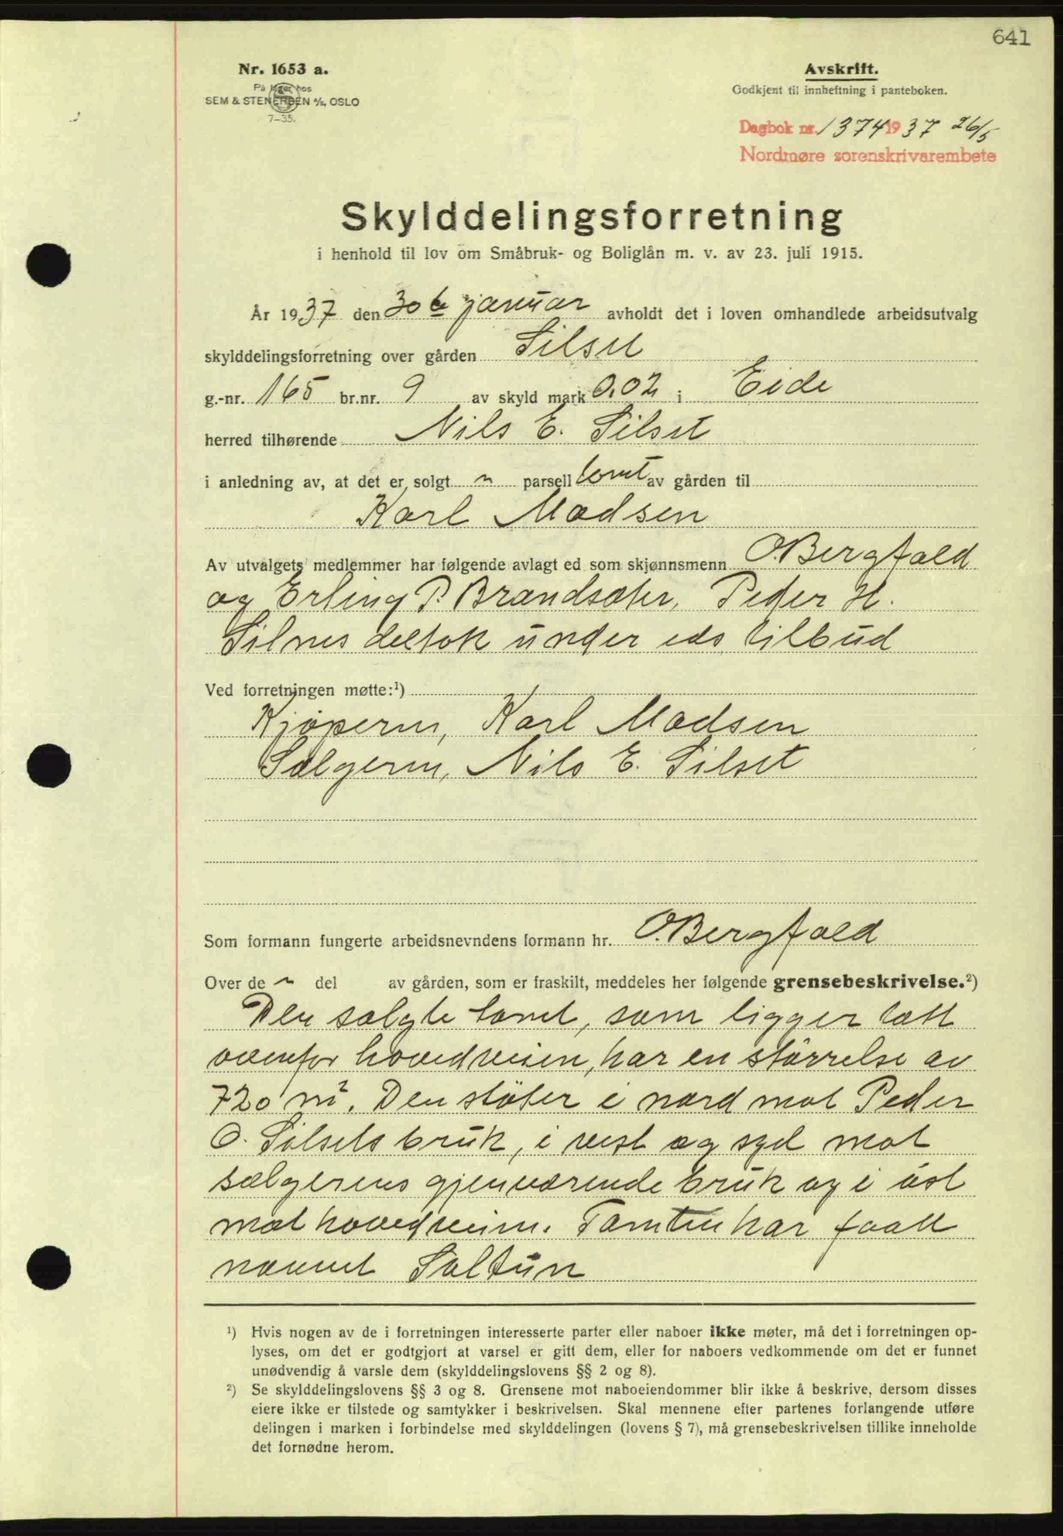 641
Nr. 1653 a.
På lager hos
SEM & STENERSEN A/S, OSLO
7-35.
Avskrift.
Godkjent til innheftning i panteboken.
Dagbok nr. 1374 1937 26/5
Nordmøre sorenskrivarembete
Skylddelingsforretning
i henhold til lov om Småbruk- og Boliglån m. v. av 23. juli 1915.
År 1937 den 30te januar avholdt det i loven omhandlede arbeidsutvalg
skylddelingsforretning over gården Silset
g.-nr. 165 br.nr. 9 av skyld mark 0.02 i Eide
herred tilhørende Nils E. Silset
i anledning av, at det er solgt parsell tomt av gården til
Karl Madsen
Av utvalgets medlemmer har følgende avlagt ed som skjønnsmenn O. Bergfald
og Erling P. Brandsæter, Peder H.
Silnes deltok under eds tilbud
Ved forretningen møtte:¹)
Kjøperen, Karl Madsen
Sælgeren, Nils E. Silset
Som formann fungerte arbeidsnevndens formann hr. O. Bergfald
Over de del av gården, som er fraskilt, meddeles her følgende grensebeskrivelse.²)
Den solgte tomt, som ligger tett
ovenfor hovedveien, har en størrelse av
720 m². Den støter i nord mot Peder
O. Silsets bruk, i vest og syd mot
sælgerens gjenværende bruk og i øst
mot hovedveien. Tomten har faatt
navnet Soltun
¹) Hvis nogen av de i forretningen interesserte parter eller naboer ikke møter, må det i forretningen op-
lyses, om det er godtgjort at varsel er gitt dem, eller for naboers vedkommende om det er funnet
unødvendig å varsle dem (skylddelingslovens §§ 2 og 8).
²) Se skylddelingslovens §§ 3 og 8. Grensene mot naboeiendommer blir ikke å beskrive, dersom disses
eiere ikke er tilstede og samtykker i beskrivelsen. Skal mennene efter partenes forlangende utføre
delingen i marken i forbindelse med skylddelingen (lovens § 7), må grensebeskrivelsen tillike inneholde
det fornødne herom.